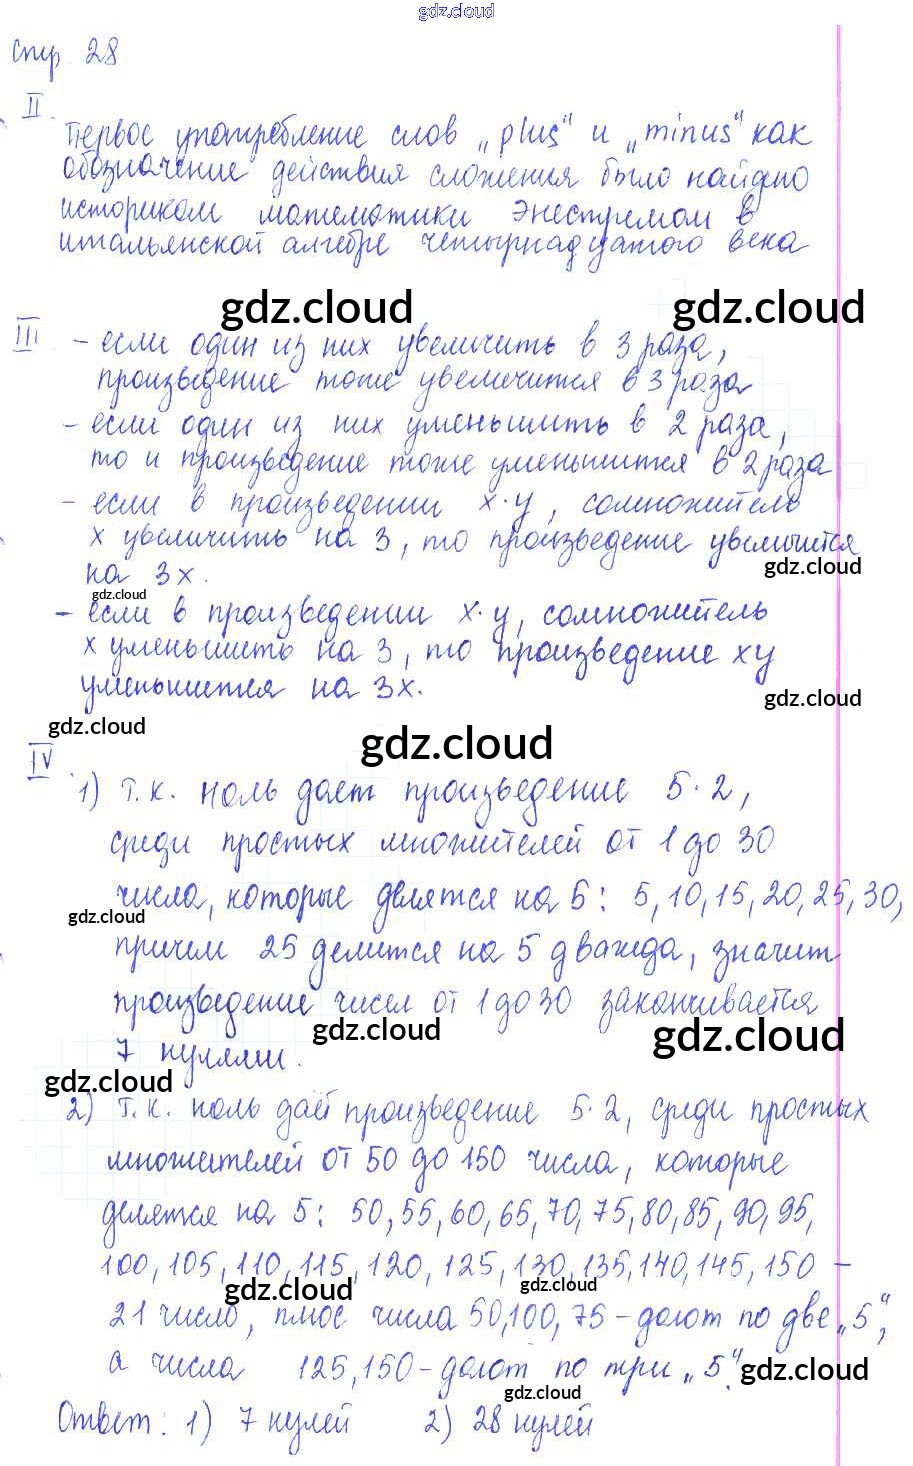 gdz.cloud
стр. 28
II.
Первое употребление слов „plus“ и „minus“ как
обозначение действия сложения было найдено
историком математики Энестремом в
итальянской алгебре четырнадцатого века
gdz.cloud gdz.cloud
III - если один из них увеличить в 3 раза,
произведение тоже увеличится в 3 раза
- если один из них уменьшить в 2 раза,
то и произведение тоже уменьшится в 2 раза
- если в произведении x·y, сомножитель
x увеличить на 3, то произведение увеличится
gdz.cloud
на 3x.
gdz.cloud
- если в произведении x·y, сомножитель
x уменьшить на 3, то произведение xy
уменьшится на 3x.
gdz.cloud
gdz.cloud
gdz.cloud
IV
1) Т.к. ноль дает произведение 5·2,
среди простых множителей от 1 до 30
числа, которые делятся на 5: 5, 10, 15, 20, 25, 30,
gdz.cloud
причем 25 делится на 5 дважды, значит
произведение чисел от 1 до 30 заканчивается
gdz.cloud gdz.cloud
7 нулями.
gdz.cloud
2) Т.к. ноль даёт произведение 5·2, среди простых
множителей от 50 до 150 числа, которые
делятся на 5: 50, 55, 60, 65, 70, 75, 80, 85, 90, 95,
100, 105, 110, 115, 120, 125, 130, 135, 140, 145, 150 –
gdz.cloud gdz.cloud
21 число, плюс числа 50, 100, 75 – дают по две „5“,
а числа 125, 150 – дают по три „5“.
gdz.cloud
gdz.cloud
Ответ: 1) 7 нулей 2) 28 нулей